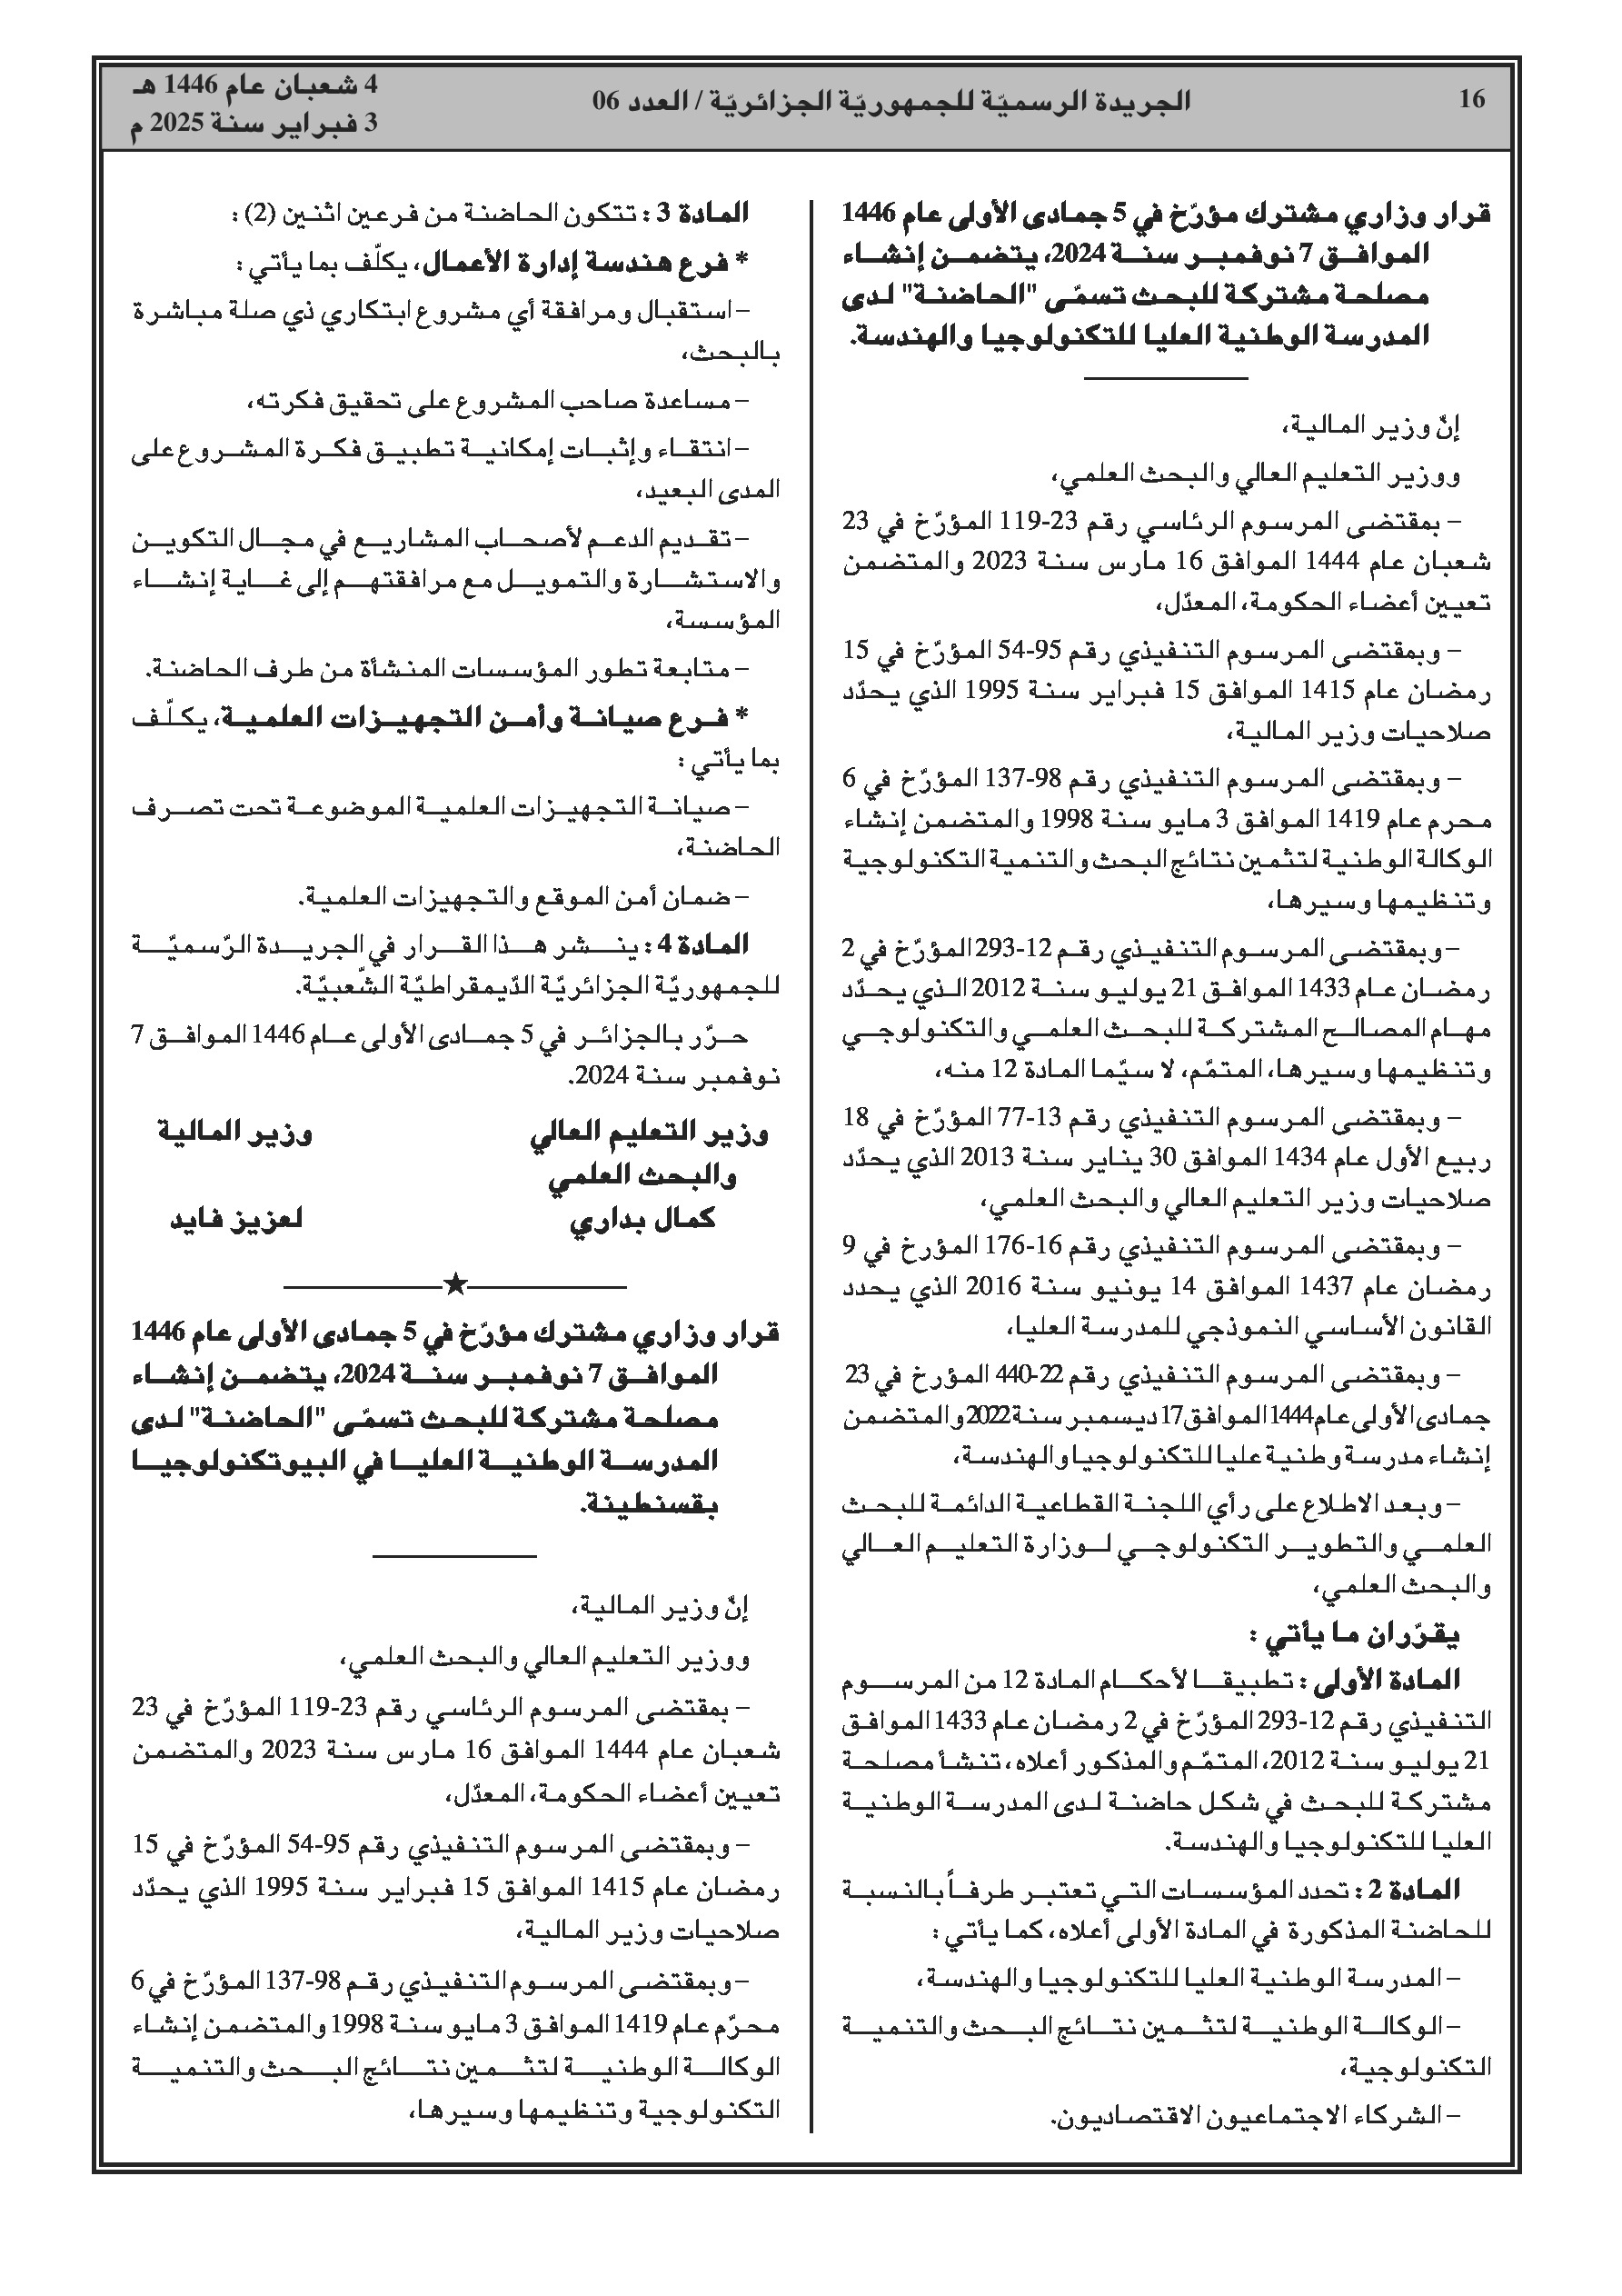 16
الجريدة الرسميّة للجمهوريّة الجزائريّة / العدد 06
4 شعبان عام 1446 هـ
3 فبراير سنة 2025 م
قرار وزاري مشترك مؤرّخ في 5 جمادى الأولى عام 1446
الموافق 7 نوفمبر سنة 2024، يتضمن إنشاء
مصلحة مشتركة للبحث تسمّى "الحاضنة" لدى
المدرسة الوطنية العليا للتكنولوجيا والهندسة.
إنّ وزير المالية،
ووزير التعليم العالي والبحث العلمي،
– بمقتضى المرسوم الرئاسي رقم 23-119 المؤرّخ في 23
شعبان عام 1444 الموافق 16 مارس سنة 2023 والمتضمن
تعيين أعضاء الحكومة، المعدّل،
– وبمقتضى المرسوم التنفيذي رقم 95-54 المؤرّخ في 15
رمضان عام 1415 الموافق 15 فبراير سنة 1995 الذي يحدّد
صلاحيات وزير المالية،
– وبمقتضى المرسوم التنفيذي رقم 98-137 المؤرّخ في 6
محرم عام 1419 الموافق 3 مايو سنة 1998 والمتضمن إنشاء
الوكالة الوطنية لتثمين نتائج البحث والتنمية التكنولوجية
وتنظيمها وسيرها،
– وبمقتضى المرسوم التنفيذي رقم 12-293 المؤرّخ في 2
رمضان عام 1433 الموافق 21 يوليو سنة 2012 الذي يحدّد
مهام المصالح المشتركة للبحث العلمي والتكنولوجي
وتنظيمها وسيرها، المتمّم، لا سيّما المادة 12 منه،
– وبمقتضى المرسوم التنفيذي رقم 13-77 المؤرّخ في 18
ربيع الأول عام 1434 الموافق 30 يناير سنة 2013 الذي يحدّد
صلاحيات وزير التعليم العالي والبحث العلمي،
– وبمقتضى المرسوم التنفيذي رقم 16-176 المؤرخ في 9
رمضان عام 1437 الموافق 14 يونيو سنة 2016 الذي يحدد
القانون الأساسي النموذجي للمدرسة العليا،
– وبمقتضى المرسوم التنفيذي رقم 22-440 المؤرخ في 23
جمادى الأولى عام 1444 الموافق 17 ديسمبر سنة 2022 والمتضمن
إنشاء مدرسة وطنية عليا للتكنولوجيا والهندسة،
– وبعد الاطلاع على رأي اللجنة القطاعية الدائمة للبحث
العلمي والتطوير التكنولوجي لوزارة التعليم العالي
والبحث العلمي،
يقرّران ما يأتي :
المادة الأولى : تطبيقا لأحكام المادة 12 من المرسوم
التنفيذي رقم 12-293 المؤرّخ في 2 رمضان عام 1433 الموافق
21 يوليو سنة 2012، المتمّم والمذكور أعلاه، تنشأ مصلحة
مشتركة للبحث في شكل حاضنة لدى المدرسة الوطنية
العليا للتكنولوجيا والهندسة.
المادة 2 : تحدد المؤسسات التي تعتبر طرفاً بالنسبة
للحاضنة المذكورة في المادة الأولى أعلاه، كما يأتي :
– المدرسة الوطنية العليا للتكنولوجيا والهندسة،
– الوكالة الوطنية لتثمين نتائج البحث والتنمية
التكنولوجية،
– الشركاء الاجتماعيون الاقتصاديون.
المادة 3 : تتكون الحاضنة من فرعين اثنين (2) :
* فرع هندسة إدارة الأعمال، يكلّف بما يأتي :
– استقبال ومرافقة أي مشروع ابتكاري ذي صلة مباشرة
بالبحث،
– مساعدة صاحب المشروع على تحقيق فكرته،
– انتقاء وإثبات إمكانية تطبيق فكرة المشروع على
المدى البعيد،
– تقديم الدعم لأصحاب المشاريع في مجال التكوين
والاستشارة والتمويل مع مرافقتهم إلى غاية إنشاء
المؤسسة،
– متابعة تطور المؤسسات المنشأة من طرف الحاضنة.
* فرع صيانة وأمن التجهيزات العلمية، يكلّف
بما يأتي :
– صيانة التجهيزات العلمية الموضوعة تحت تصرف
الحاضنة،
– ضمان أمن الموقع والتجهيزات العلمية.
المادة 4 : ينشر هذا القرار في الجريدة الرّسميّة
للجمهوريّة الجزائريّة الدّيمقراطيّة الشّعبيّة.
حرّر بالجزائر في 5 جمادى الأولى عام 1446 الموافق 7
نوفمبر سنة 2024.
وزير التعليم العالي وزير المالية
والبحث العلمي
كمال بداري لعزيز فايد
قرار وزاري مشترك مؤرّخ في 5 جمادى الأولى عام 1446
الموافق 7 نوفمبر سنة 2024، يتضمن إنشاء
مصلحة مشتركة للبحث تسمّى "الحاضنة" لدى
المدرسة الوطنية العليا في البيوتكنولوجيا
بقسنطينة.
إنّ وزير المالية،
ووزير التعليم العالي والبحث العلمي،
– بمقتضى المرسوم الرئاسي رقم 23-119 المؤرّخ في 23
شعبان عام 1444 الموافق 16 مارس سنة 2023 والمتضمن
تعيين أعضاء الحكومة، المعدّل،
– وبمقتضى المرسوم التنفيذي رقم 95-54 المؤرّخ في 15
رمضان عام 1415 الموافق 15 فبراير سنة 1995 الذي يحدّد
صلاحيات وزير المالية،
– وبمقتضى المرسوم التنفيذي رقم 98-137 المؤرّخ في 6
محرّم عام 1419 الموافق 3 مايو سنة 1998 والمتضمن إنشاء
الوكالة الوطنية لتثمين نتائج البحث والتنمية
التكنولوجية وتنظيمها وسيرها،